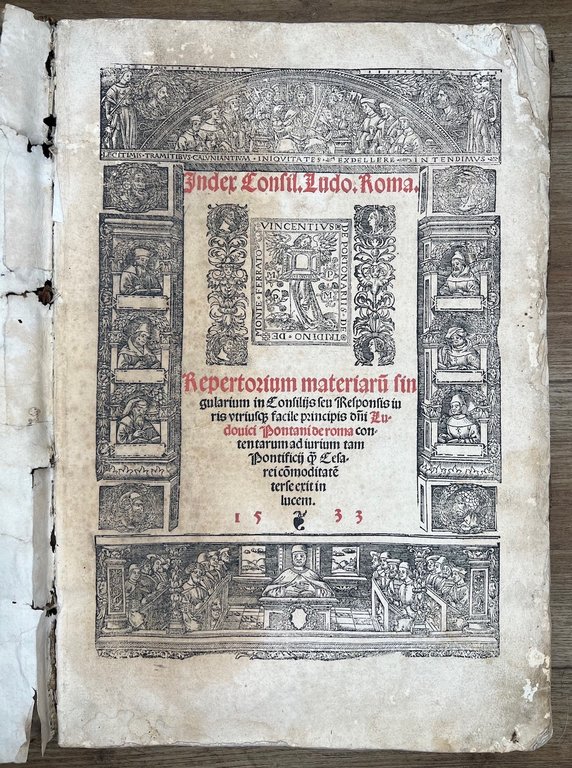 CITIMIS · TRAMITIBVS CALVNIANTIVM · INIQVITATES · EXPELLERE · INTENDIMVS
Index Consil. Ludo. Roma.
VINCENTIVS
DE PORTONARIIS · DE
TRIDINO · DE
MONTE · FERRATO
M P
Repertorium materiarū sin
gularium in Consilijs seu Responsis iu
ris vtriusq; facile principis dñi Lu-
douici Pontani de roma con-
tentarum ad iurium tam
Pontificij q̃ Cesa-
rei cōmoditatē
terse exit in
lucem.
1533